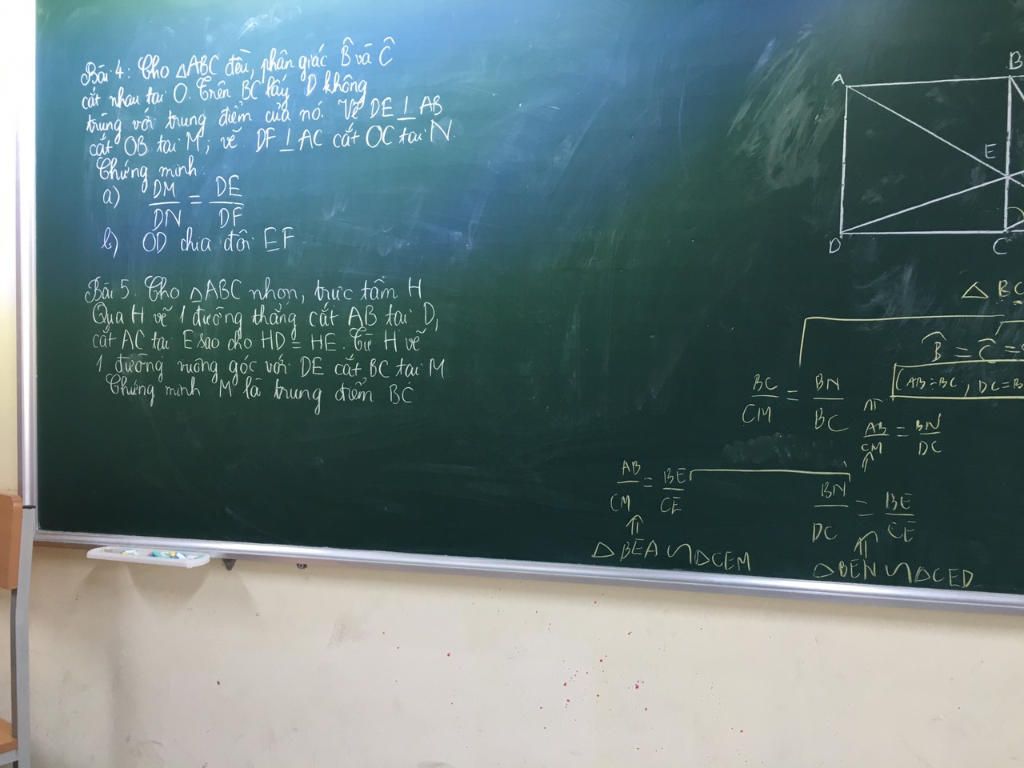 Bài 4: Cho △ABC đều, phân giác B̂ và Ĉ
cắt nhau tại O. Trên BC lấy D không
trùng với trung điểm của nó. Vẽ DE ⊥ AB
cắt OB tại M; vẽ DF ⊥ AC cắt OC tại N.
Chứng minh
a) DM/DN = DE/DF
b) OD chia đôi EF
Bài 5. Cho △ABC nhọn, trực tâm H
Qua H vẽ 1 đường thẳng cắt AB tại D,
cắt AC tại E sao cho HD = HE. Từ H vẽ
1 đường vuông góc với DE cắt BC tại M
Chứng minh M là trung điểm BC
A B
E
D C
△BC
B̂ = Ĉ =
(AB=BC, DC=B
BC/CM = BN/BC
AB/CM = BN/DC
AB/CM = BE/CE
BN/DC = BE/CE
⇑ ⇑
△BEA ∽ △CEM
△BEN ∽ △CED